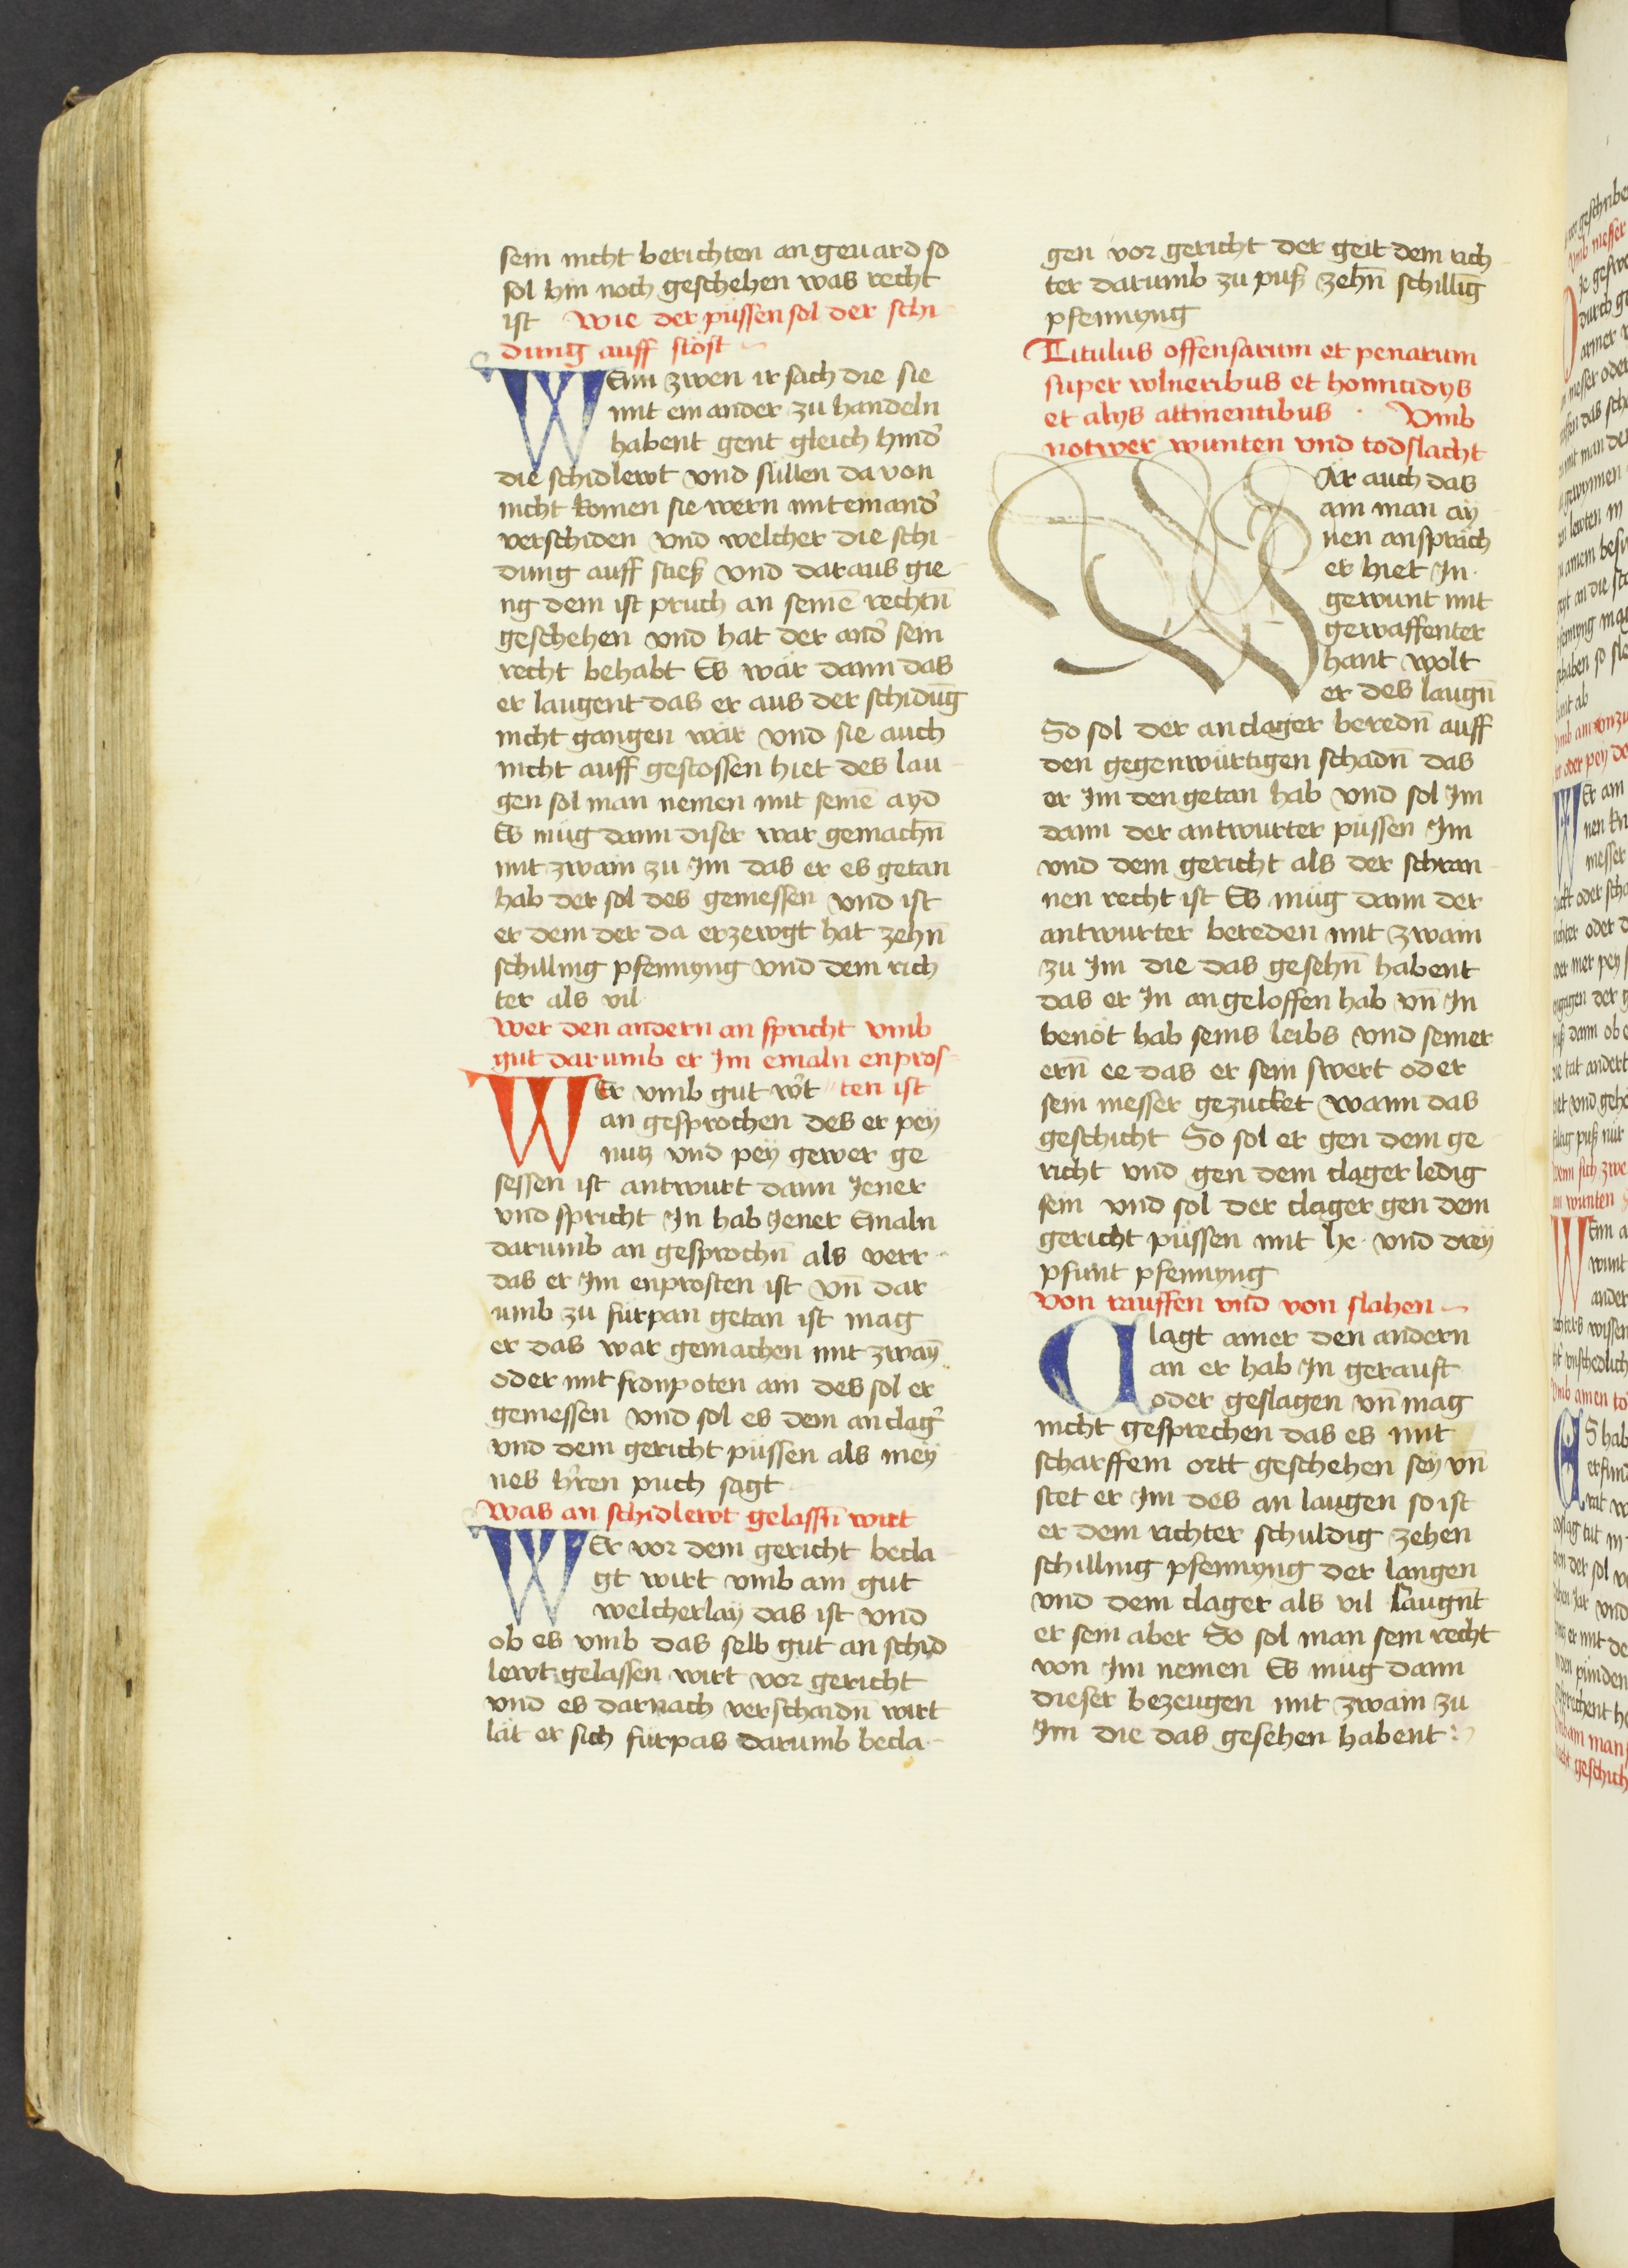 sein nicht berichten an geuard so
sol hin noch geschehen was recht
ist Wie der püssen sol der schi
dung auff stöst
WEnn zwen ir sach die sie
mit ein ander zu handeln
habent gent gleich hind̉
die schidlewt vnd süllen da von
nicht komen sie wern mit einand̉
verschiden vnd welcher die schi
dung auff stieß vnd daraus gie
ng dem ist pruch an seinē rechtn̄
geschehen vnd hat der and̉ sein
recht behabt Es wär dann das
er laugent das er aus der schidūg
nicht gangen wär vnd sie auch
nicht auff gestossen hiet des lau
gen sol man nemen mit seinē ayd
Es müg dann diser war gemachn̄
mit zwain zu Im das er es getan
hab der sol des geniessen vnd ist
er dem der da erzewgt hat zehn̄
schilling pfennyng vnd dem rich
ter als vil
Wer den andern an spricht vmb
gut darumb er Im emaln enpros
WEr vmb gut wt̉ ten ist
an gesprochen des er pey
nutz vnd pey gewer ge
sessen ist antwurt dann Jener
vnd spricht In hab Jener Emaln
darumb an gesprochn̄ als verr
das er Im enprosten ist vn̄ dar
umb zu fürpan getan ist mag
er das war gemachen mit zwayn̄
oder mit fronpoten ain des sol er
geniessen vnd sol es dem an clag̉
vnd dem gericht püssen als mey
nes hr̉ren puch sagt
Was an schidlewt gelassn̄ wirt
WEr vor dem gericht becla
gt wirt vmb ain gut
welcherlay das ist vnd
ob es vmb das selb gut an schid
lewt gelassen wirt vor gericht
vnd es darnach verschaidn̄ wirt
lät er sich fürpas darumb becla
gen vor gericht der geit dem rich
ter darumb zu puß zehn̄ schillīg
pfennyng
Titulus offensarum et penarum
super wlneribus et homicidys
et alys attinentibus · Vmb
notwer wunten vnd todslacht
WAr auch das
ain man ay
nen anspräch
er hiet In
gewunt mit
gewaffenter
hant wolt
er des laugn̄
So sol der anclager beredn̄ auff
den gegenwürtigen schadn̄ das
er Im den getan hab vnd sol Im
dann der antwurter püssen Im
vnd dem gericht als der schran
nen recht ist Es müg dann der
antwurter bereden mit zwain
zu Im die das gesehn̄ habent
das er In angeloffen hab vn̄ In
benöt hab seins leibs vnd seiner
ern̄ ee das er sein swert oder
sein messer gezucket wann das
geschicht So sol er gen dem ge
richt vnd gen dem clager ledig
sein vnd sol der clager gen dem
gericht püssen mit lx· vnd drey
pfunt pfennyng
Von rauffen vnd von slahen
Clagt ainer den andern
an er hab In gerauft
oder geslagen vn̄ mag
nicht gesprechen das es mit
scharffem ortt geschehen sey vn̄
stet er Im des an laugen so ist
er dem richter schuldig zehen
schilling pfennyng der langen
vnd dem clager als vil laugn̄t
er sein aber So sol man sein recht
von Im nemen Es müg dann
dieser bezeugen mit zwain zu
Im die das gesehen habent